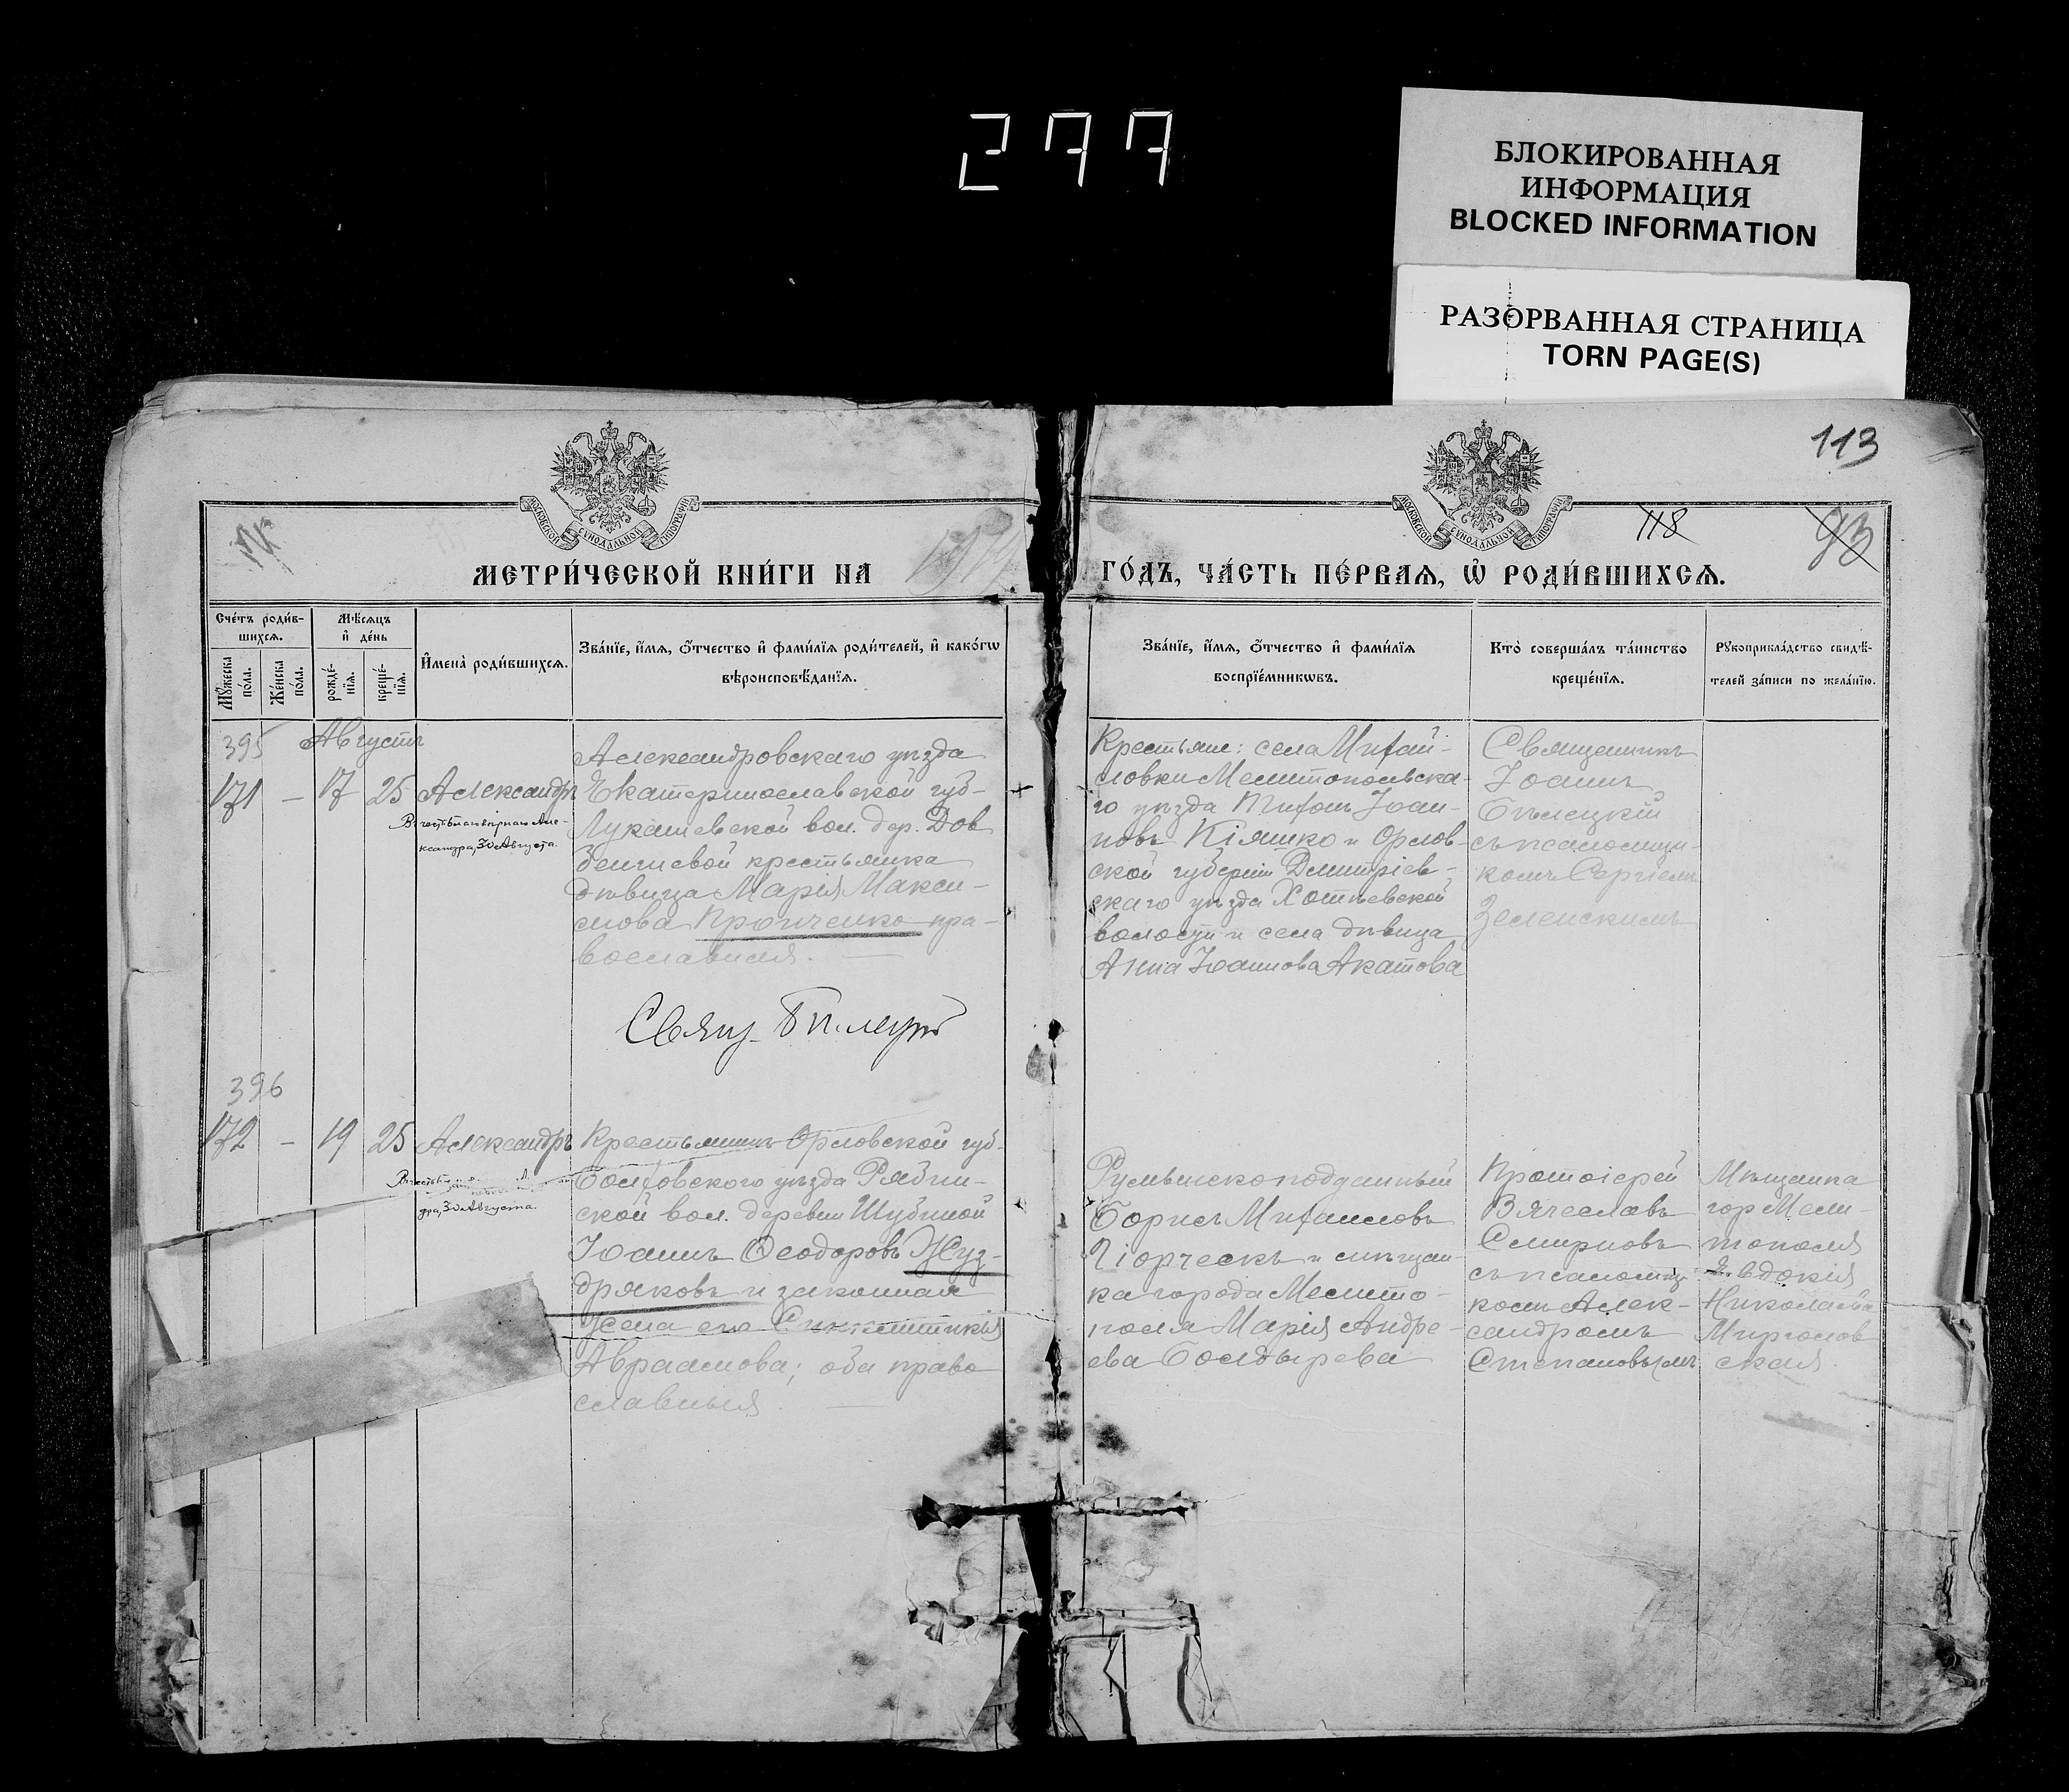 277
БЛОКИРОВАННАЯ
ИНФОРМАЦИЯ
BLOCKED INFORMATION
РАЗОРВАННАЯ СТРАНИЦА
TORN PAGE(S)
113
МОСКОВСКОЙ СѴНОДАЛЬНОЙ ТИПОГРАФІИ
МОСКОВСКОЙ СѴНОДАЛЬНОЙ ТИПОГРАФІИ
118
93
МЕТРИ́ЧЕСКОЙ КНИ́ГИ НА
ГО́ДЪ, ЧА́СТЬ ПЕ́РВАѦ, Ѡ҆ РОДИ́ВШИХСѦ.
Сче́тъ роди́в-
шихсѧ.
Мꙋ́жеска по́ла.
Же́нска по́ла.
Мѣ́сѧцъ
и҆ де́нь
рожде́-
нїѧ.
креще́-
нїѧ.
И҆мена̀ роди́вшихсѧ.
Зва́нїе, и҆́мѧ, ѻ҆́тчество и҆ фами́лїѧ роди́телей, и҆ како́гѡ
вѣроисповѣ́данїѧ.
Зва́нїе, и҆́мѧ, ѻ҆́тчество и҆ фами́лїѧ
воспрїе́мникѡвъ.
Кто̀ соверша́лъ та́инство
креще́нїѧ.
Рꙋкоприкла́дство свидѣ́-
телей за́писи по жела́нїю.
395
Августъ
171 — 17 25 Александръ
ксандра, 30 Августа.
Александровскаго уѣзда
Екатеринославской губ-
Лукашевской вол. дер. Дов
бенчевой крестьянка
дѣвица Марія Макси-
мова Кронченко пра-
вославная. —
Свящ. Бѣлецкій
Крестьяне: села Михай-
ловки Мелитопольска-
го уѣзда Тихонъ Іоан-
новъ Кіяшко и Орлов-
ской губерніи Дмитріев-
скаго уѣзда Хотѣевской
волости и села дѣвица
Анна Іоаннова Акатова
Священникъ
Іоаннъ
Бѣлецкій
съ псаломщи-
комъ Сергіемъ
Зеленскимъ
396
172 — 19 25 Александръ
дра, 30 Августа.
Крестьянинъ Орловской губ-
Болховского уѣзда Рябин-
ской вол. деревни Шубиной
Іоаннъ Ѳеодоровъ Жуд-
дряковъ и законная
жена его Синклитикія
Авраамова; оба право
славныя. —
Румынскоподданный
Борисъ Михаиловъ
Чіорческъ и мѣщан-
ка города Мелито-
поля Марія Андре-
ева Болдырева
Протоіерей
Вячеславъ
Смирновъ
съ псаломщи
комъ Алек-
сандромъ
Степановымъ
Мѣщанка
гор Мели-
тополя
Евдокія
Николаева
Миргоров
ская.